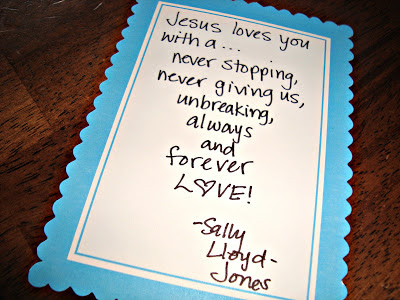 Jesus loves you
with a...
never stopping,
never giving us,
unbreaking,
always
and
forever
L♡VE!
-Sally
Lloyd-
Jones